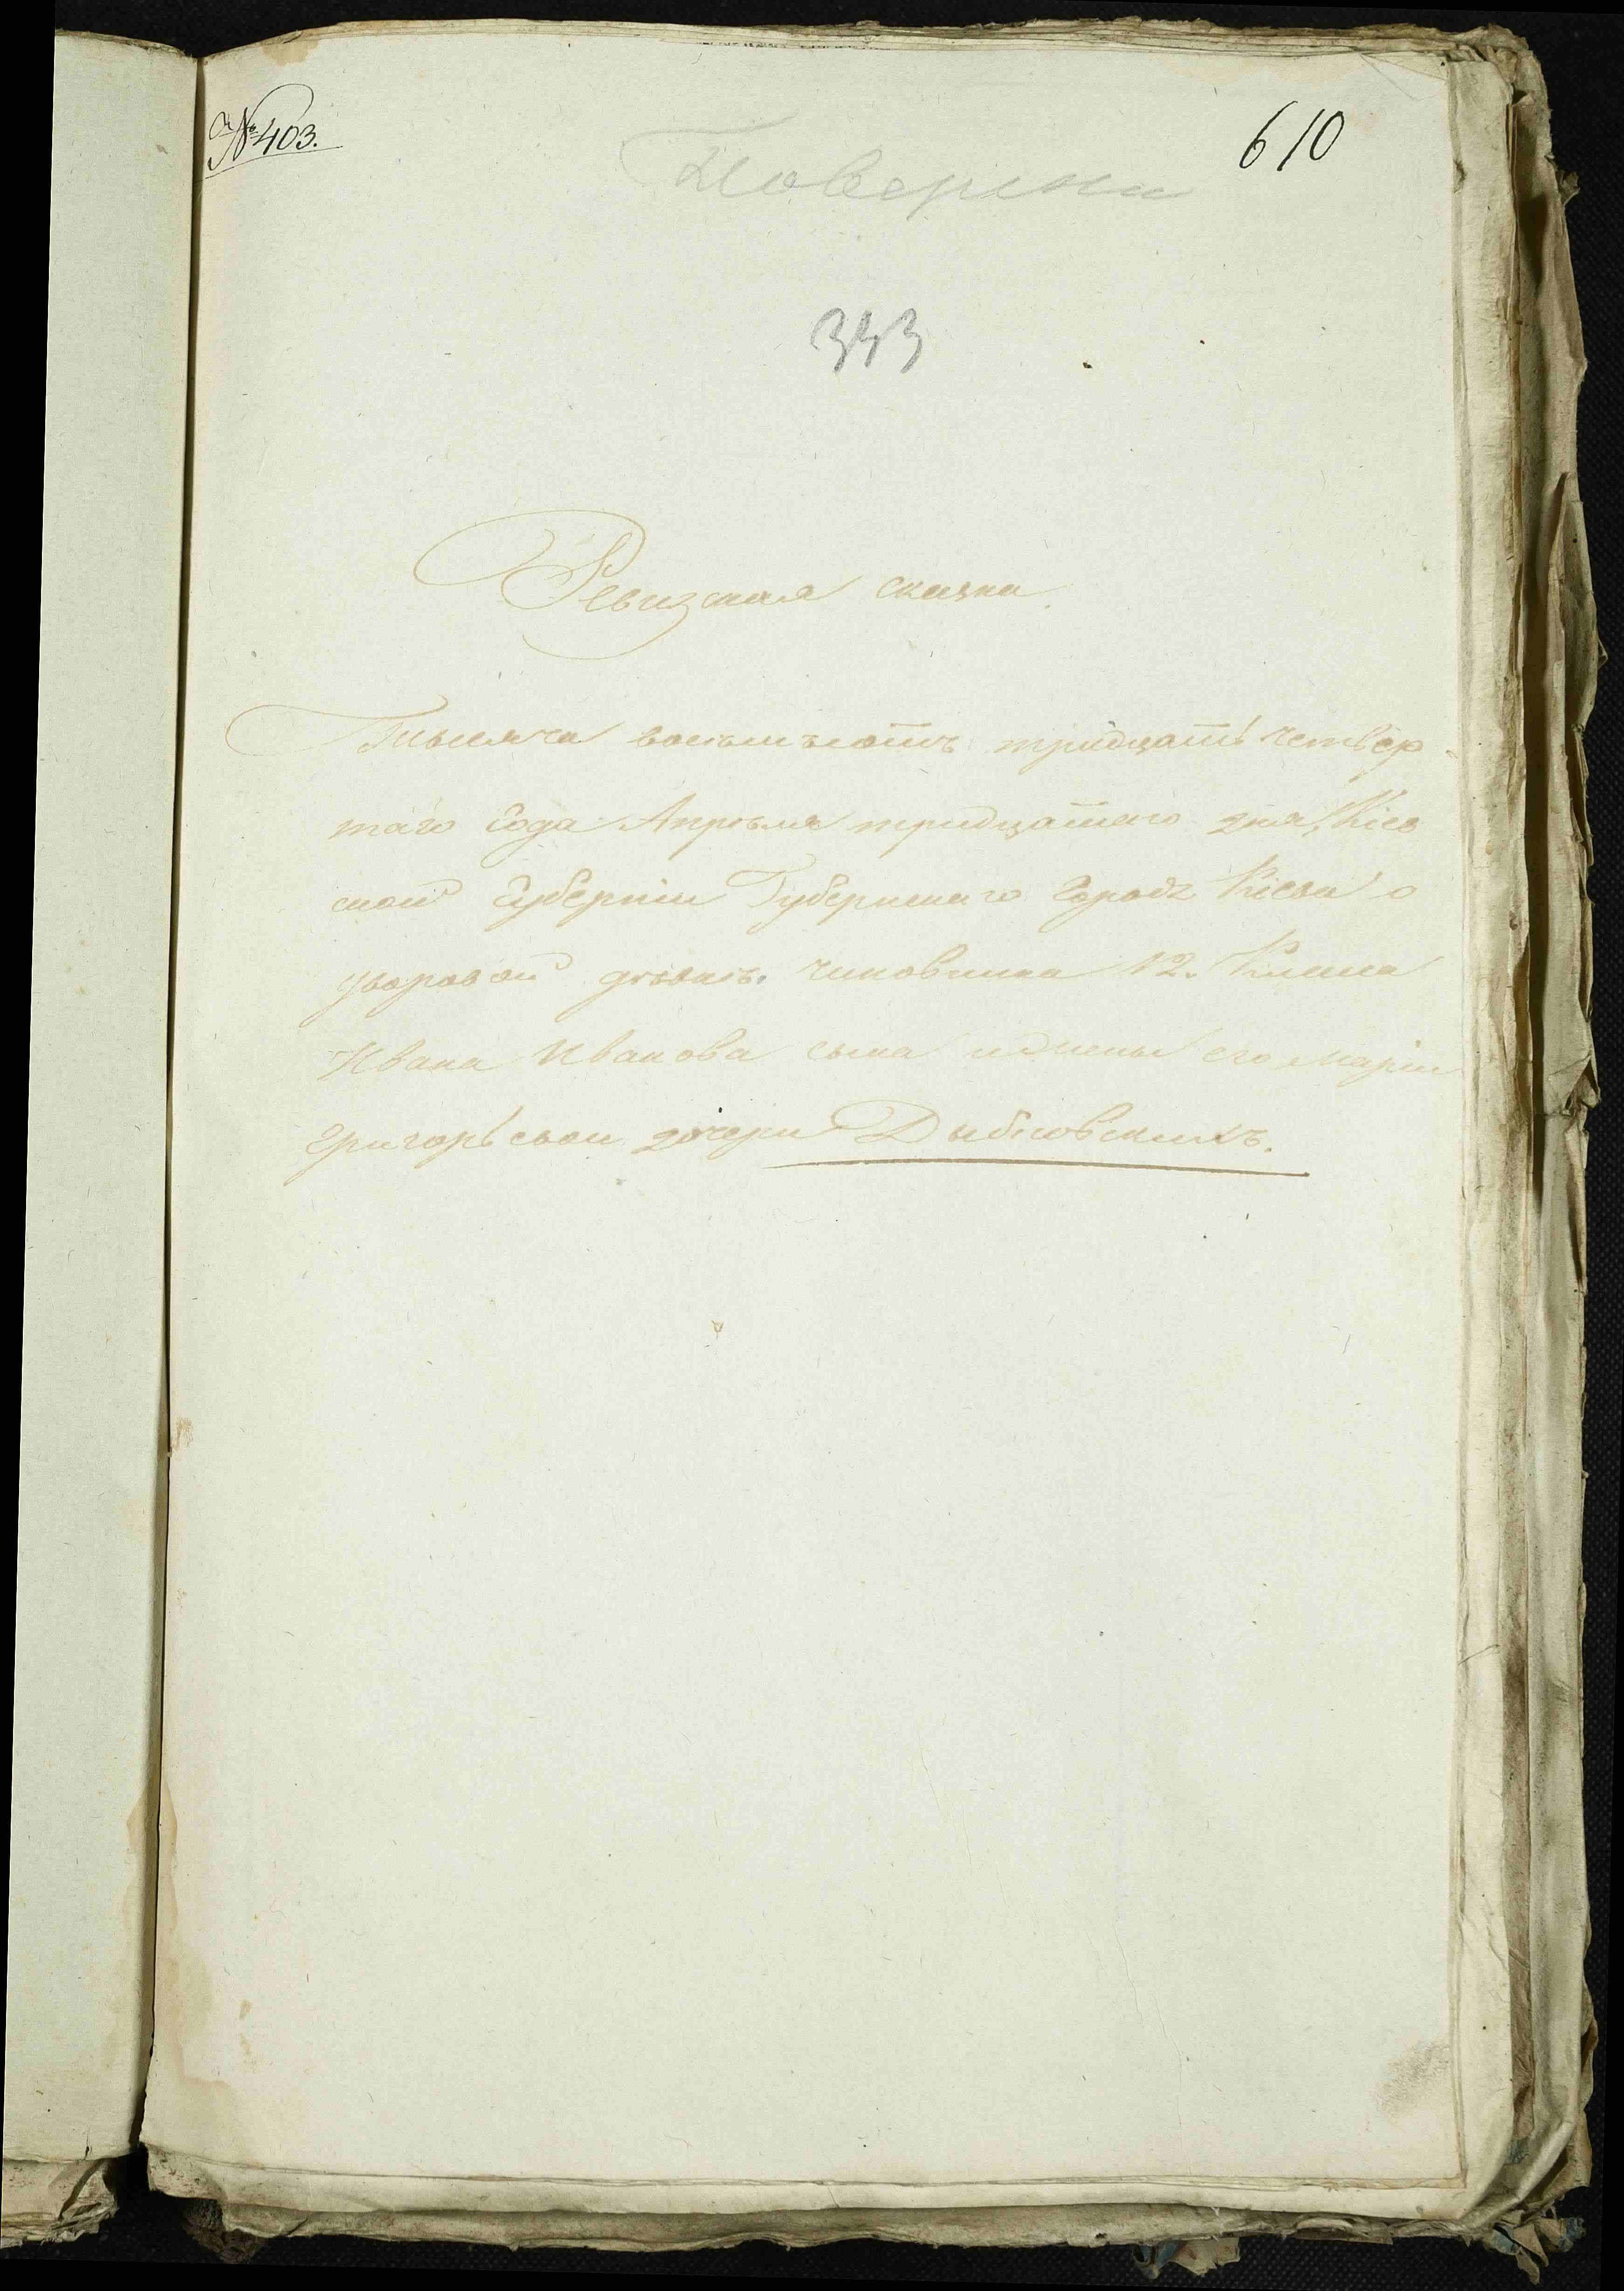 № 403.
610
343
Ревизская сказка
Тысяча восемьсотъ тридцать четвер-
таго Года Апрѣля тридцатаго дня, Кіев
ской Губерніи Губернскаго Города Кіева о
дворовой чиновника 12. Класса
Ивана Иванова сына и жены его Маріи
Григорьевой дочери